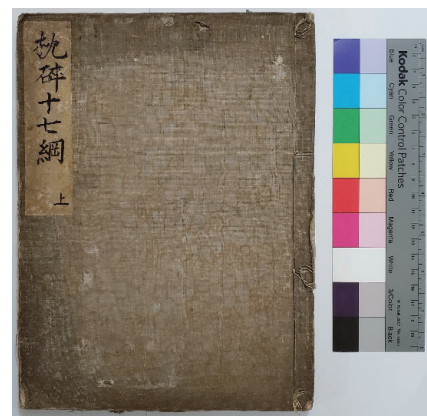 枕碎十七綱
上
Kodak Color Control Patches
Blue
Cyan
Green
Yellow
Red
Magenta
White
3/Color
Black